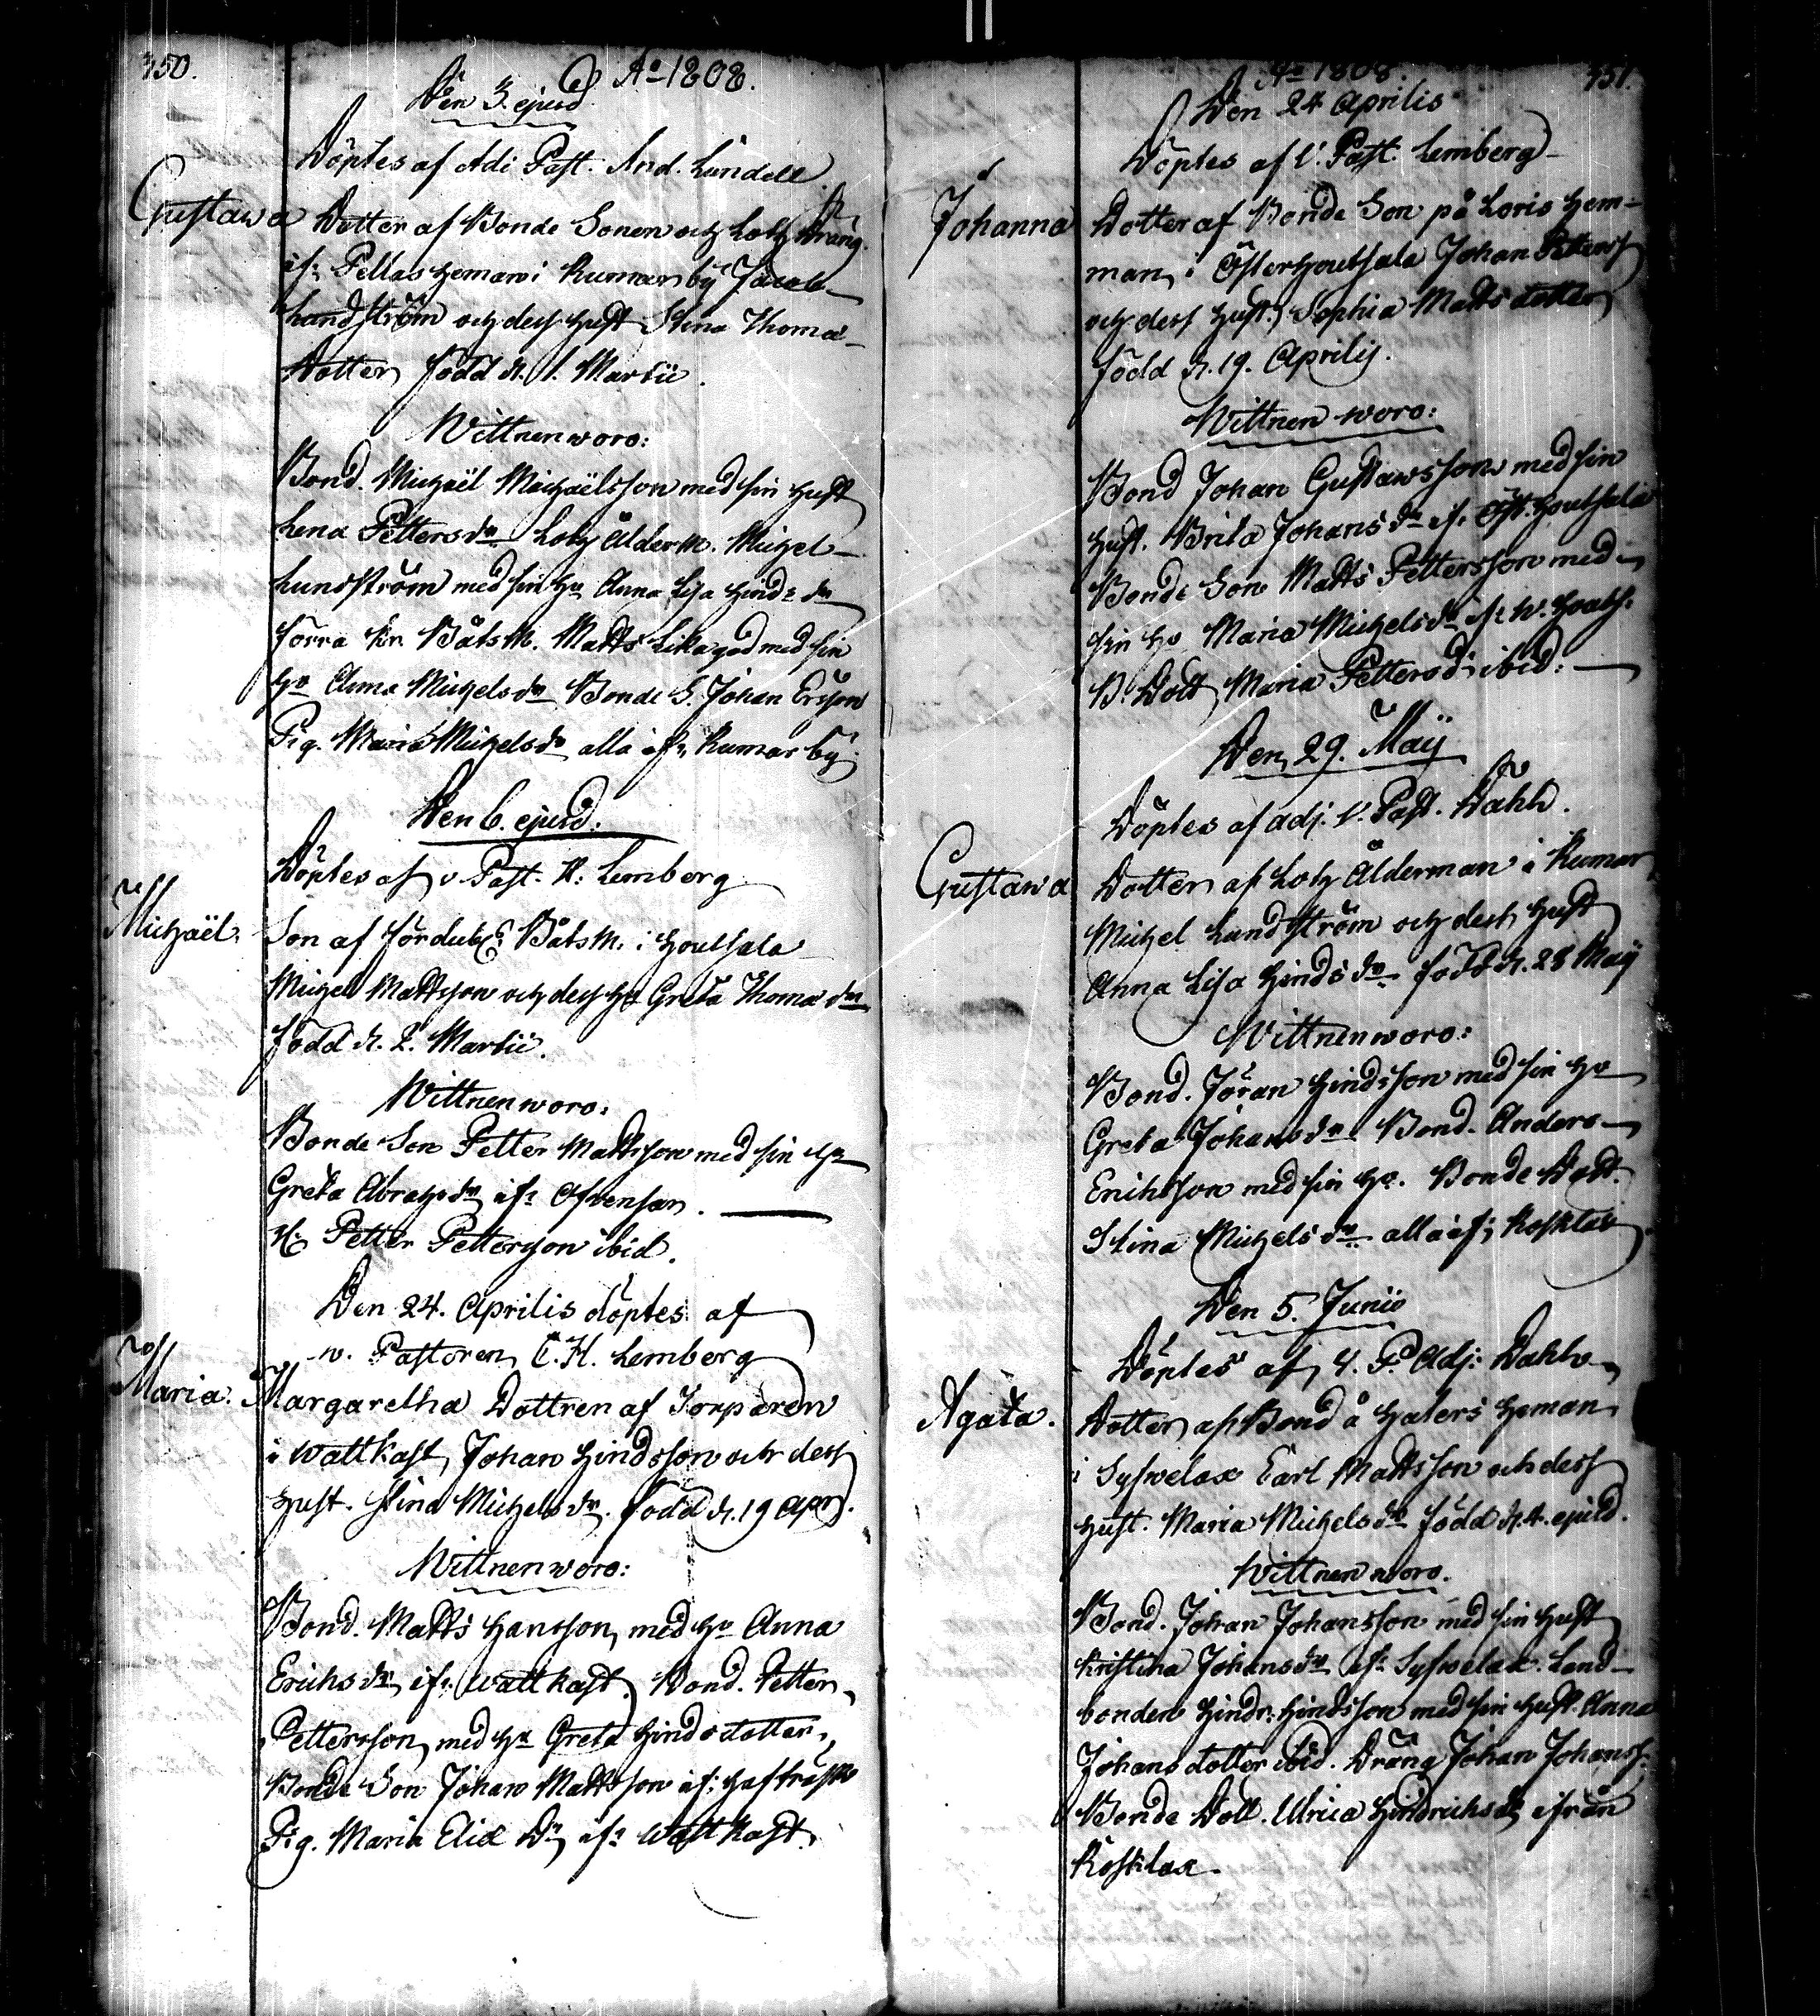 350.
Ao 1808.
Den 3. ejusd
Döptes af Adi Past. And. Lundell
Gustawa Dotter af Bonde Sonen och Lots Dräng
if: Pellas heman i Kumar by Jacob
Lundström och dess Hust Stina Thoma
dotter född d. 1. Martii.
Wittnen woro:
Bond. Michaël Michaëlsson med sin Hust
Lena Pettersdr Lots Ålderm. Michel
Lundström med sin Hu Anna Lisa Hindr dr
förra Kr. Båtsm. Matts Likagod med sin
Hu Anna Michelsdr Bonde S. Johan Ersson
Pig. Maria Michelsdr alla ifr Kumar by.
Den 6. ejusd.
Döptes af v. Past. H. Lemberg
Michaël. Son af Fördubl: Båtsm. i Houtsala
Michel Mattsson och dess Hu Greta Thoma dr
född d. 2. Martii.
Wittnen woro:
Bonde Son Petter Mattsson med sin Hu
Greta Abrahsdr ifr Ofvensar.
Petter Pettersson ibid.
Den 24. Aprilis döptes af
v. Pastoren C. H. Lemberg
Maria. Margaretha Dottren af Torparen
i Wattkast, Johan Hindsson och dess
Hust. Stina Michelsdr. född d. 19 Apr.
Wittnen woro:
Bond. Matts Hansson, med Hu Anna
Erichsdr, ifr Wattkast. Bond. Petter
Pettersson, med Hu Greta Hindsdotter,
Bonde Son Johan Mattsson if: Hafträsk
Pig. Maria Eliæ Dr ifr Wattkast.
Ao 1808.
351.
Den 24 Aprilis
Döptes af V. Past. Lemberg
Johanna Dotter af Bonde Son på Loris Hem-
man i Österhoutsala Johan Petterss
och dess Hust. Sophia Matts dotter
född d. 19. Aprilis.
Wittnen woro:
Bond Johan Gustawsson med sin
Hust. Brita Johans dr if. Öst. Houtsala
Bonde Son Matts Pettersson med
sin Hu Maria Michelsdr if: W. Houts:
B. Dott Maria Pettersd: ibid:
Den 29. Maij
Döptes af adj. V. Past. Dahl.
Gustawa Dotter af Lots Ålderman i Kumar
Michel Lundström och dess Hust
Anna Lisa Hindsdr född d. 28 Maij
Wittnen woro:
Bond. Jöran Hindsson med sin Hu
Greta Johansdr Bond. Anders
Erichsson med sin Hu. Bonde Dott.
Stina Michelsdr alla if: Kosklax
Den 5. Junii
Döptes af V. P. Adj: Dahl
Agata. Dotter af Bond å Haters Heman
i Sysvelax Carl Mattsson och dess
Hust. Maria Michelsdr född d. 4. ejusd.
Wittnen woro.
Bond. Johan Johansson med sin Hust
Kristina Johansdr ifr Sysvelax. Land-
bonden Hindr: Hindsson med sin Hust. Anna
Johansdotter ibid. Dräng Johan Johanss:
Bonde Dott. Ulrica Hindrichsdr ifrån
Kosklax.